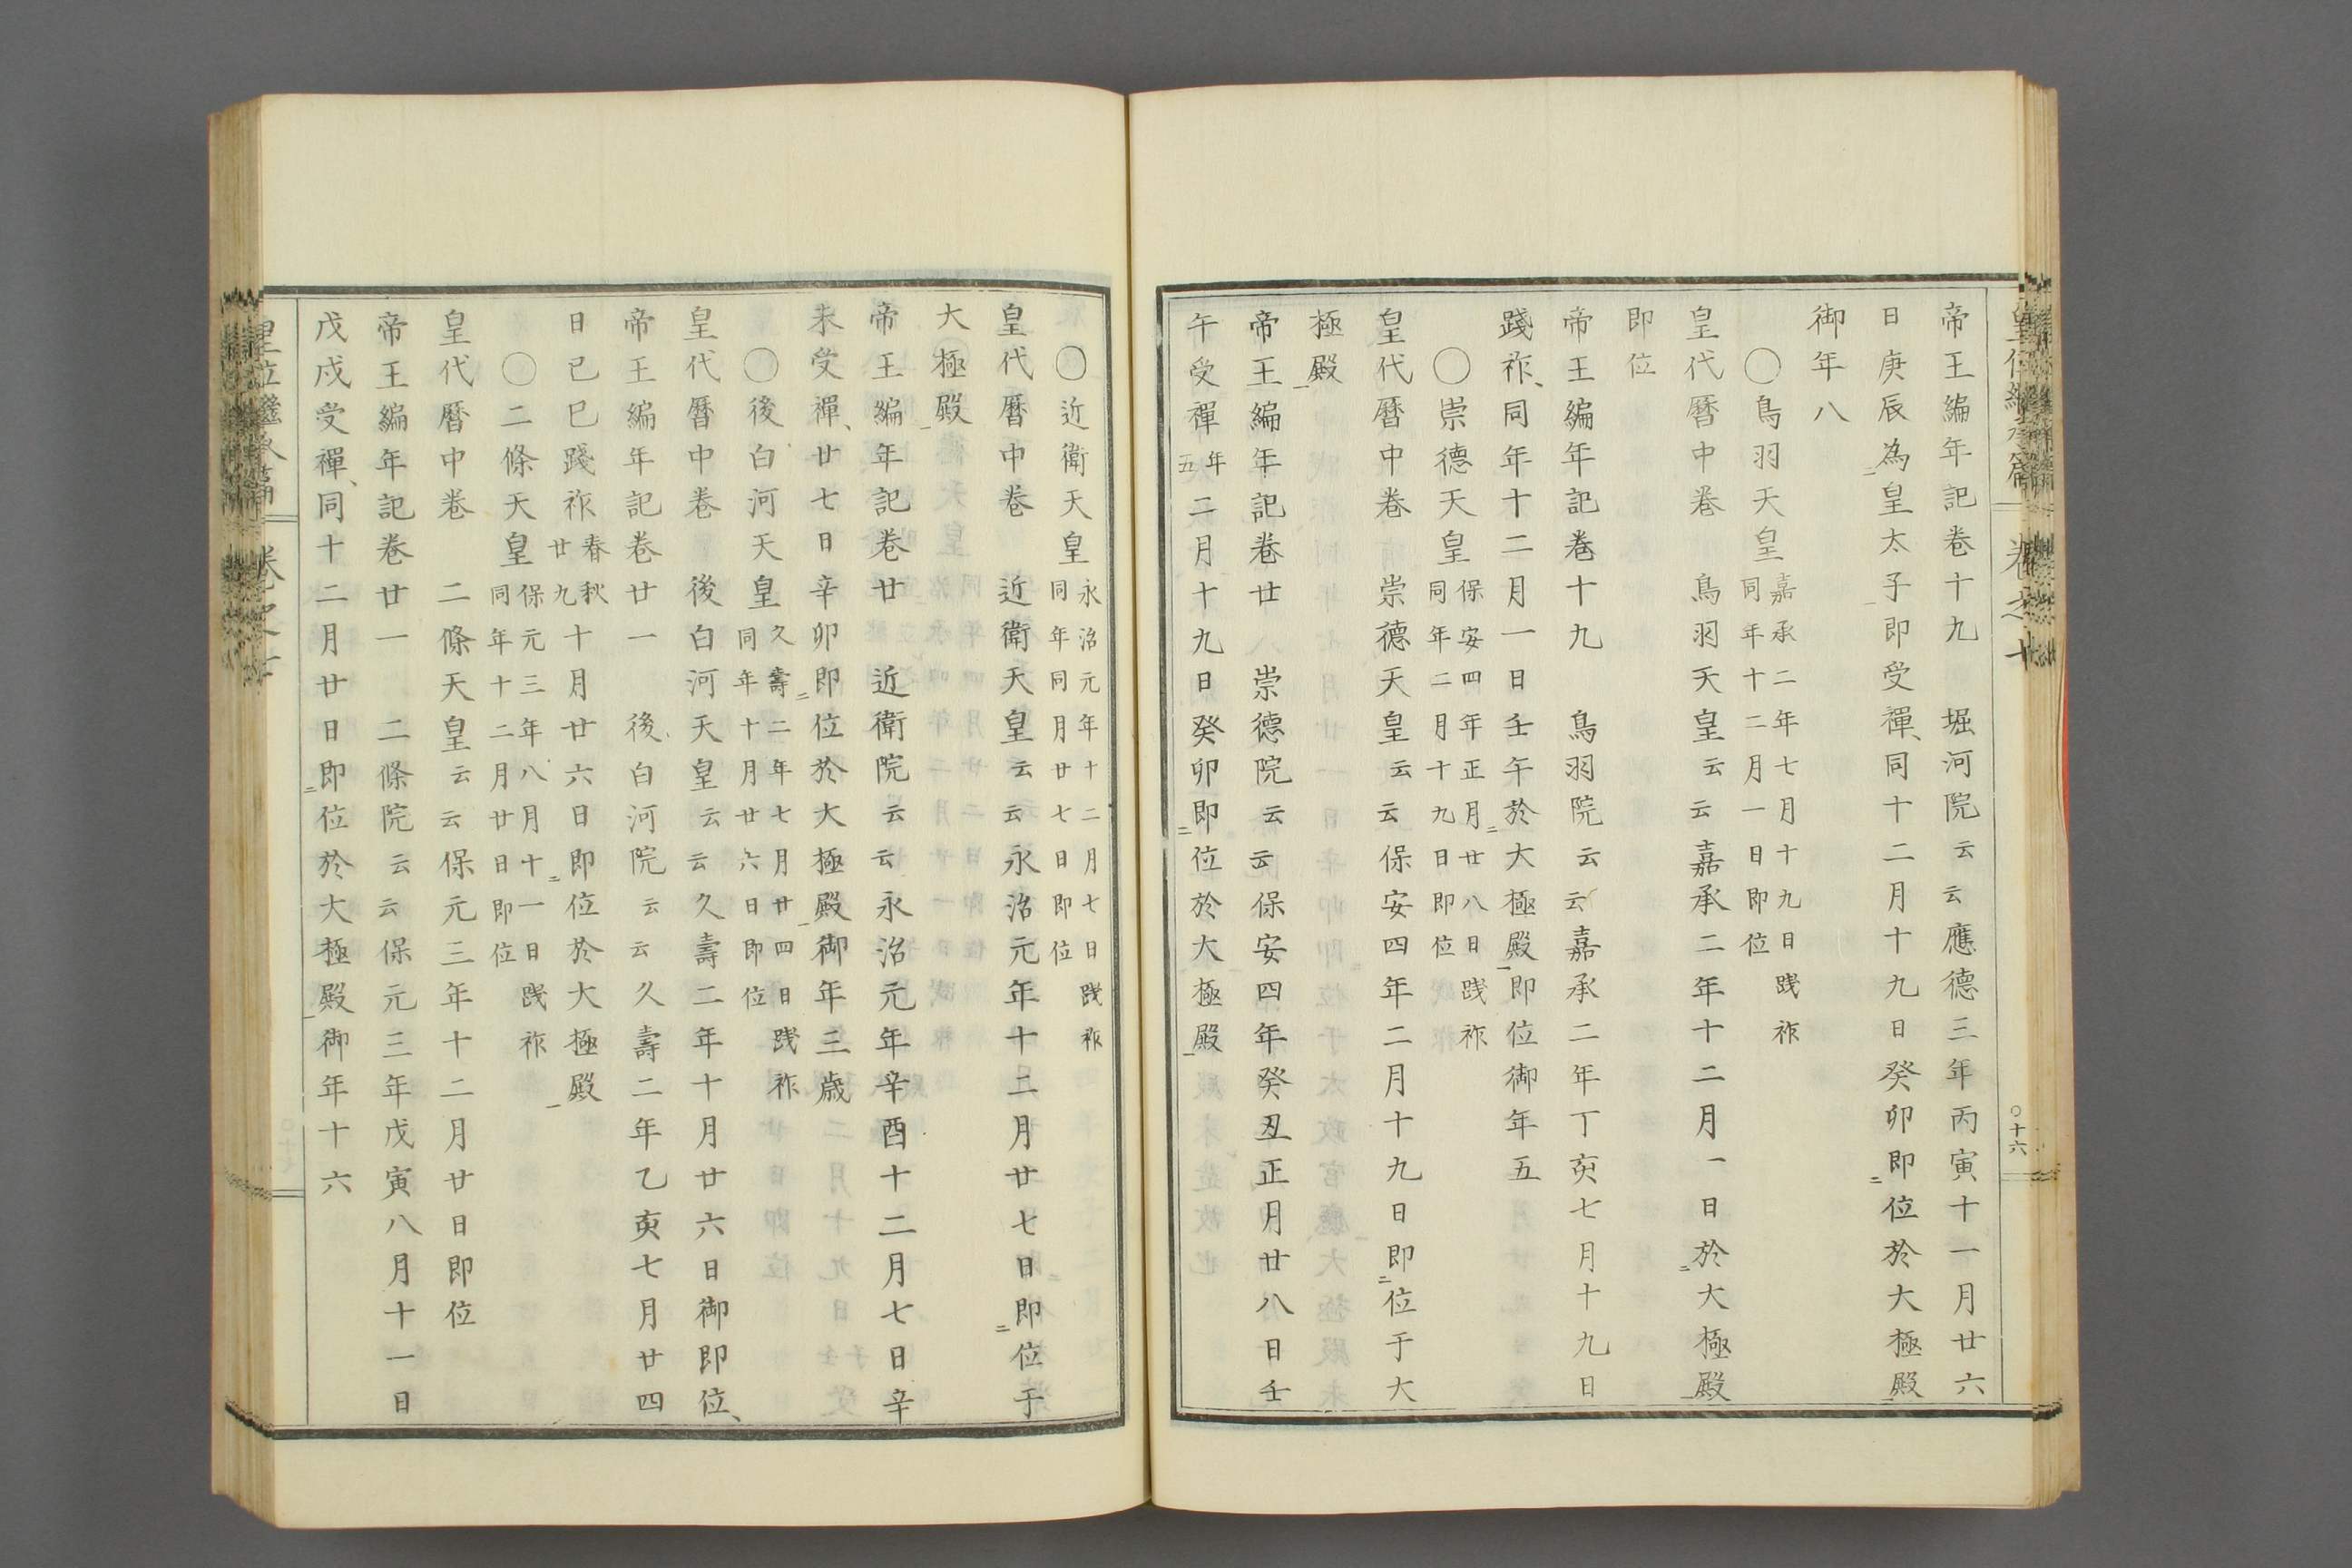 帝王編年記卷十九　堀河院云云應德三年丙寅十一月廿六
日庚辰為皇太子即受禪、同十二月十九日癸卯即位於大極殿
御年八
〇鳥羽天皇嘉承二年七月十九日踐祚
同年十二月一日即位
皇代曆中卷　鳥羽天皇云云嘉承二年十二月一日於大極殿
即位
帝王編年記卷十九　鳥羽院云云嘉承二年丁亥七月十九日
踐祚、同年十二月一日壬午於大極殿即位御年五
〇崇德天皇保安四年正月廿八日踐祚
同年二月十九日即位
皇代曆中卷　崇德天皇云云保安四年二月十九日即位于大
極殿
帝王編年記卷廿　崇德院云云保安四年癸丑正月廿八日壬
午受禪年
五二月十九日癸卯即位於大極殿
〇十六
〇近衛天皇永治元年十二月七日踐祚
同年同月廿七日即位
皇代曆中卷　近衛天皇云云永治元年十二月廿七日即位于
大極殿
帝王編年記卷廿　近衛院云云永治元年辛酉十二月七日辛
未受禪、廿七日辛卯即位於大極殿御年三歲
〇後白河天皇久壽二年七月廿四日踐祚
同年十月廿六日即位
皇代曆中卷　後白河天皇云云久壽二年十月廿六日御即位、
帝王編年記卷廿一　後白河院云云久壽二年乙亥七月廿四
日己巳踐祚春秋
廿九十月廿六日即位於大極殿
〇二條天皇保元三年八月十一日踐祚
同年十二月廿日即位
皇代曆中卷　二條天皇云云保元三年十二月廿日即位
帝王編年記卷廿一　二條院云云保元三年戊寅八月十一日
戊戌受禪、同十二月廿日即位於大極殿御年十六